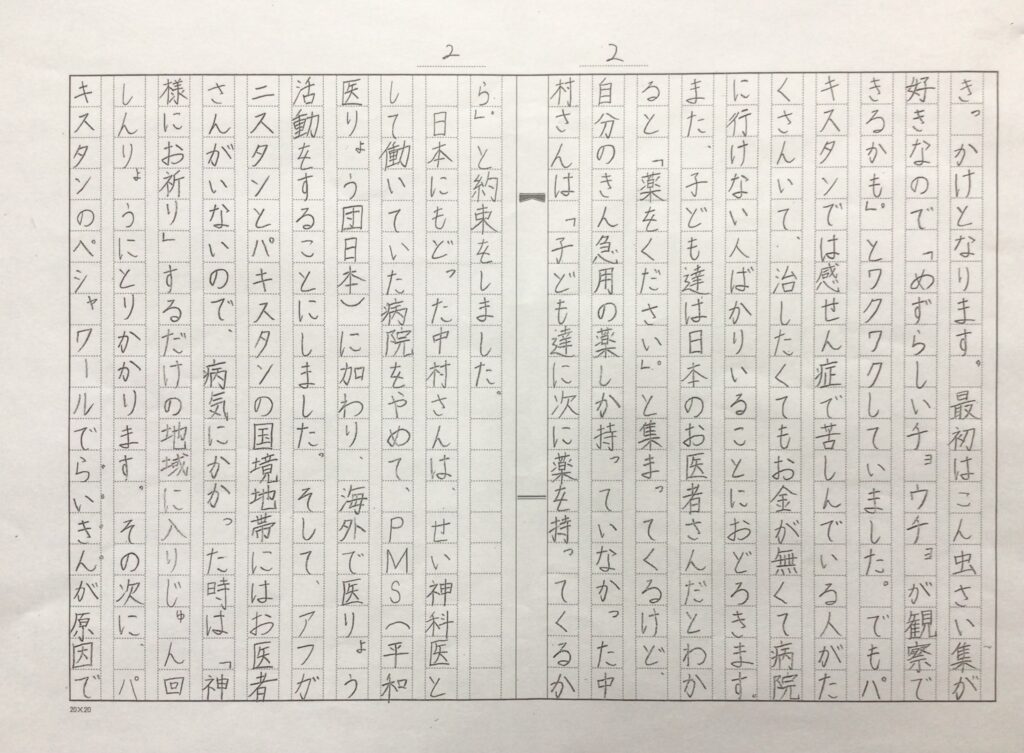 2
2
きっかけとなります。最初はこん虫さい集が
好きなので「めずらしいチョウチョが観察で
きるかも」。とワクワクしていました。でもパ
キスタンでは感せん症で苦しんでいる人がた
くさんいて、治したくてもお金が無くて病院
に行けない人ばかりいることにおどろきます。
また、子ども達は日本のお医者さんだとわか
ると「薬をください」。と集まってくるけど、
自分のきん急用の薬しか持っていなかった中
村さんは「子ども達に次に薬を持ってくるか
ら」、と約束をしました。
日本にもどった中村さんは、せい神科医と
して働いていた病院をやめて、PMS(平和
医りょう団日本)に加わり、海外で医りょう
活動をすることにしました。そして、アフガ
ニスタンとパキスタンの国境地帯にはお医者
さんがいないので、病気にかかった時は「神
様にお祈り」するだけの地域に入りじゅん回
しんりょうにとりかかります。その次に、パ
キスタンのペシャワールでらいきんが原因で
20×20